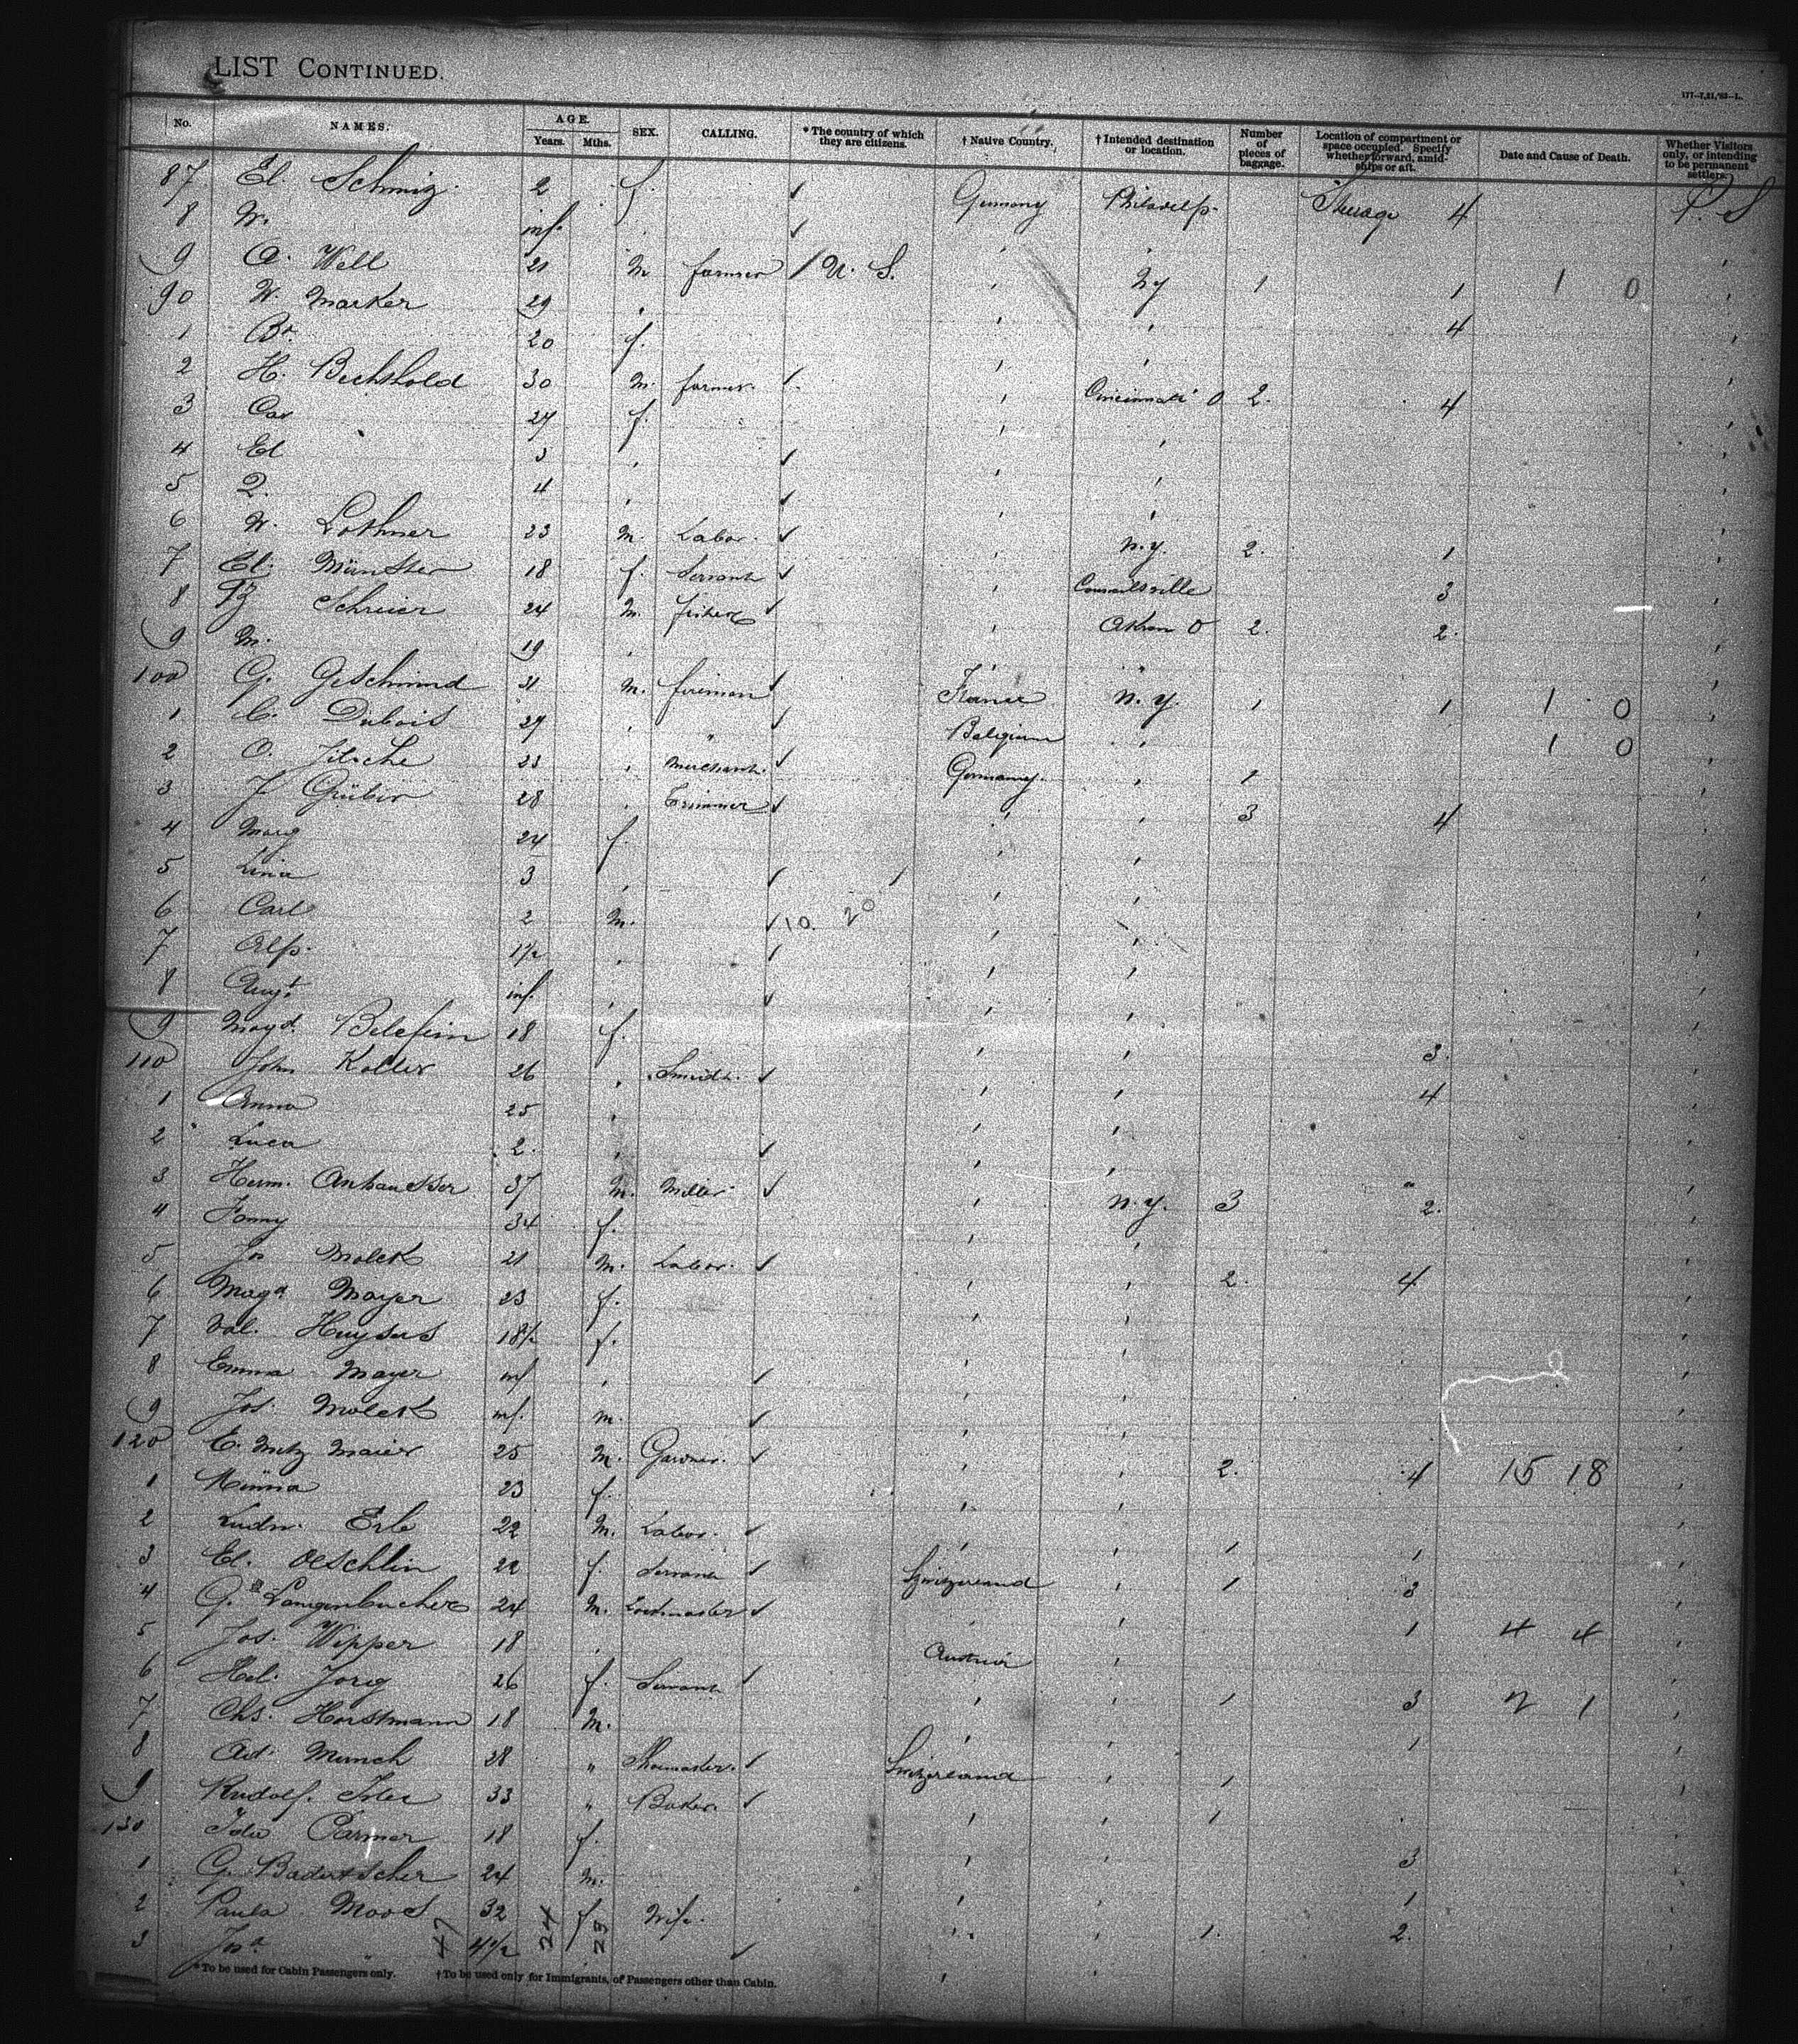 LIST CONTINUED.
177-7,21,'93-L.
No. NAMES. AGE. Years. Mths. SEX. CALLING. * The country of which they are citizens. † Native Country. † Intended destination or location. Number of pieces of baggage. Location of compartment or space occupied. Specify whether forward, amidships or aft. Date and Cause of Death. Whether Visitors only, or intending to be permanent settlers.
87 El Schmiz 2 f. ✓ Germany Philadelp. 4 P. S
8 W. inf. ' ✓ ' '
9 A. Well 21 M farmer / U. S. ' NY 1 1 1 0 '
90 W. Marker 29 ' ' ' 4 '
1 Br. 20 f. ' ' '
2 H. Bechthold 30 M. farmer. ✓ ' Cincinnati O 2. 4 '
3 Car 27 f. ' ' '
4 El 3 ' ✓ ' ' '
5 4 ' ✓ ' ' '
6 W. Lothner 23 M. Labor. ✓ ' N.Y. 2. 1 '
7 El. Münster 18 f. Servant ✓ ' 3 '
8 Schreier 24 M. ✓ ' Akron O 2. 2. '
9 M. 19 ' ' " '
100 G. Geschwind 31 M. fireman ✓ France N.Y. 1 1 1 0 '
1 C. Dubois 29 ' " ✓ Belgium ' 1 0 '
2 O. 23 ' Merchant. ✓ Germany. ' 1 '
3 J Grüber 28 ' Trimmer ✓ ' ' 3 4 '
4 Marg 24 f. ' ' '
5 Lina 3 ' ✓ / ' ' '
6 Carl 2 M. ✓ 10. 20 ' ' '
7 Alf. 1½ ' ✓ ' ' '
8 Augt. inf. ' ✓ ' ' '
9 Magd. 18 f. ' ' 3. '
110 John Koller 26 ' Smidt. ✓ ' ' 4 '
1 Anna 25 ' ' ' '
2 2. ' ✓ ' ' '
3 Herm. Anhausser 37 M. Miller ✓ ' N.Y. 3 2. '
4 Fanny 34 f. ' ' '
5 Jos Molek 21 M. Labor. ✓ ' ' 2. 4. '
6 Magd Mayer 23 f. ' ' '
7 Val. Huysers 18½ f. ' ' '
8 Emma Mayer inf ' ✓ ' ' '
9 Jos. Molek inf. M. ✓ ' ' '
120 E. Metz Maier 25 M. Gardner. ✓ ' ' 2. 4 15 18 '
1 Minna 23 f. ' ' '
2 Ludw. Erb 22 M. Labor. ✓ ' ' 1 1 '
3 El. Oeschlin 22 f. Servant ✓ Switzerland ' 1 3 '
4 G. Langenbucher 24 M. ✓ ' 1 4 4 '
5 Jos. Wipper 18 ' Austria ' '
6 Hel. Jorig 26 f. Servant ✓ ' ' 1 3 2 1 '
7 Chs. Horstmann 18 M. ' ' 1 '
8 Ad. Munch 28 " Shoemaker. ✓ Switzerland ' 1 '
9 Rudolf. Isler 33 " Baker. ✓ ' ' 1 '
130 Ida Carmer 18 f. ' ' 3 '
1 G. Badertscher 24 M. ' ' 1 '
2 Paula Moos 32 f Wife. ' ' 1. 2. '
3 " 4½ ✓ '
47 24 23
* To be used for Cabin Passengers only. † To be used only for Immigrants, of Passengers other than Cabin.